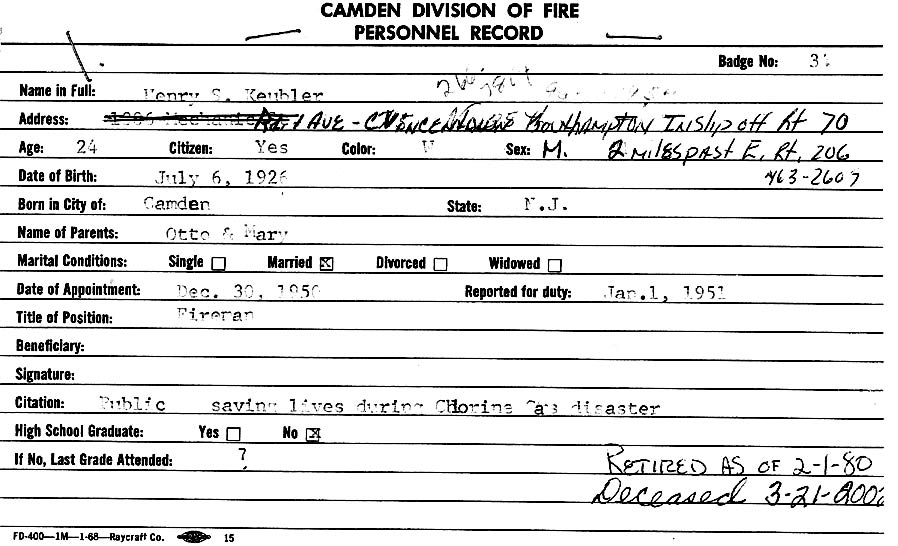 CAMDEN DIVISION OF FIRE
PERSONNEL RECORD
Badge No: 3
Name in Full: Henry S. Keubler
Address: Ave - Southampton Twp off Rt 70
Age: 24 Citizen: Yes Color: W Sex: M. 2 miles past E, Rt, 206
Date of Birth: July 6, 1926 463-2607
Born in City of: Camden State: N.J.
Name of Parents: Otto & Mary
Marital Conditions: Single ☐ Married ☒ Divorced ☐ Widowed ☐
Date of Appointment: Dec. 30, 1950 Reported for duty: Jan.1, 1951
Title of Position: Fireman
Beneficiary:
Signature:
Citation: Public saving lives during Chlorine Gas disaster
High School Graduate: Yes ☐ No ☒
If No, Last Grade Attended: 7
RETIRED AS OF 2-1-80
Deceased 3-21-200
FD-400—1M—1-68—Raycraft Co. 15